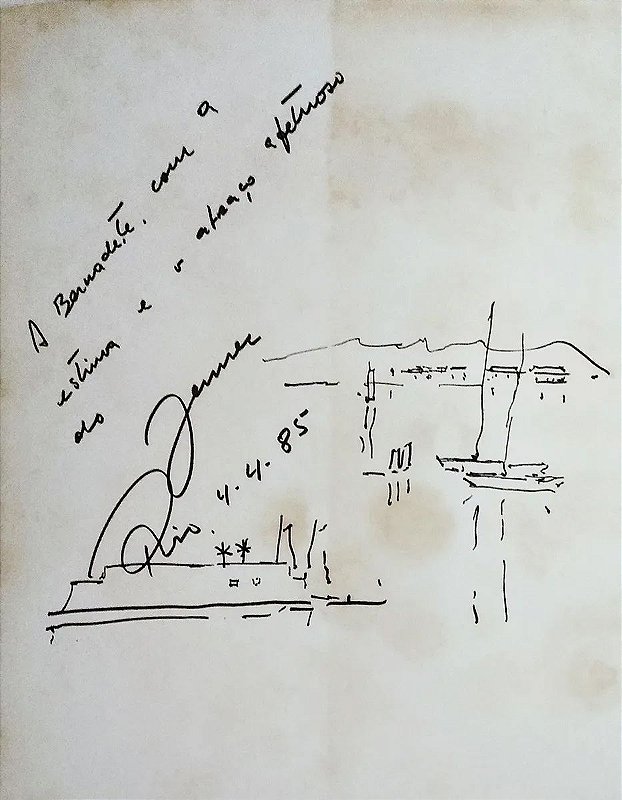 A Bernadete, com a
estima e o abraço afetuoso
do
Rio. 4.4.85